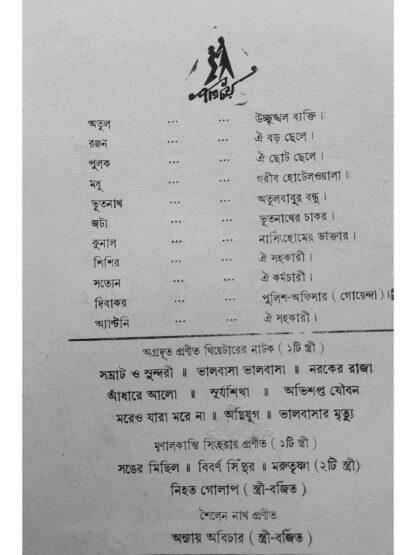 পরিচয়
অতুল ... ... উচ্ছৃঙ্খল ব্যক্তি।
রঞ্জন ... ... ঐ বড় ছেলে।
পুলক ... ... ঐ ছোট ছেলে।
মধু ... ... গরীব হোটেলওয়ালা।
ভূতনাথ ... ... অতুলবাবুর বন্ধু।
জটা ... ... ভূতনাথের চাকর।
কুনাল ... ... নার্সিংহোমের ডাক্তার।
শিশির ... ... ঐ সহকারী।
সত্যেন ... ... ঐ কর্মচারী।
দিবাকর ... ... পুলিশ-অফিসার (গোয়েন্দা)।
অ্যান্টনি ... ... ঐ সহকারী।
অগ্রদূত প্রণীত থিয়েটারের নাটক (১টি স্ত্রী)
সম্রাট ও সুন্দরী ॥ ভালবাসা ভালবাসা ॥ নরকের রাজা
আঁধারে আলো ॥ সূর্যশিখা ॥ অভিশপ্ত যৌবন
মরেও যারা মরে না ॥ অগ্নিযুগ ॥ ভালবাসার মৃত্যু
মৃণালকান্তি সিংহরায় প্রণীত (১টি স্ত্রী)
সঙের মিছিল ॥ বিবর্ণ সিঁদুর ॥ মরুতৃষ্ণা (২টি স্ত্রী)
নিহত গোলাপ (স্ত্রী-বর্জিত)
শৈলেন নাথ প্রণীত
অন্যায় অবিচার (স্ত্রী-বর্জিত)